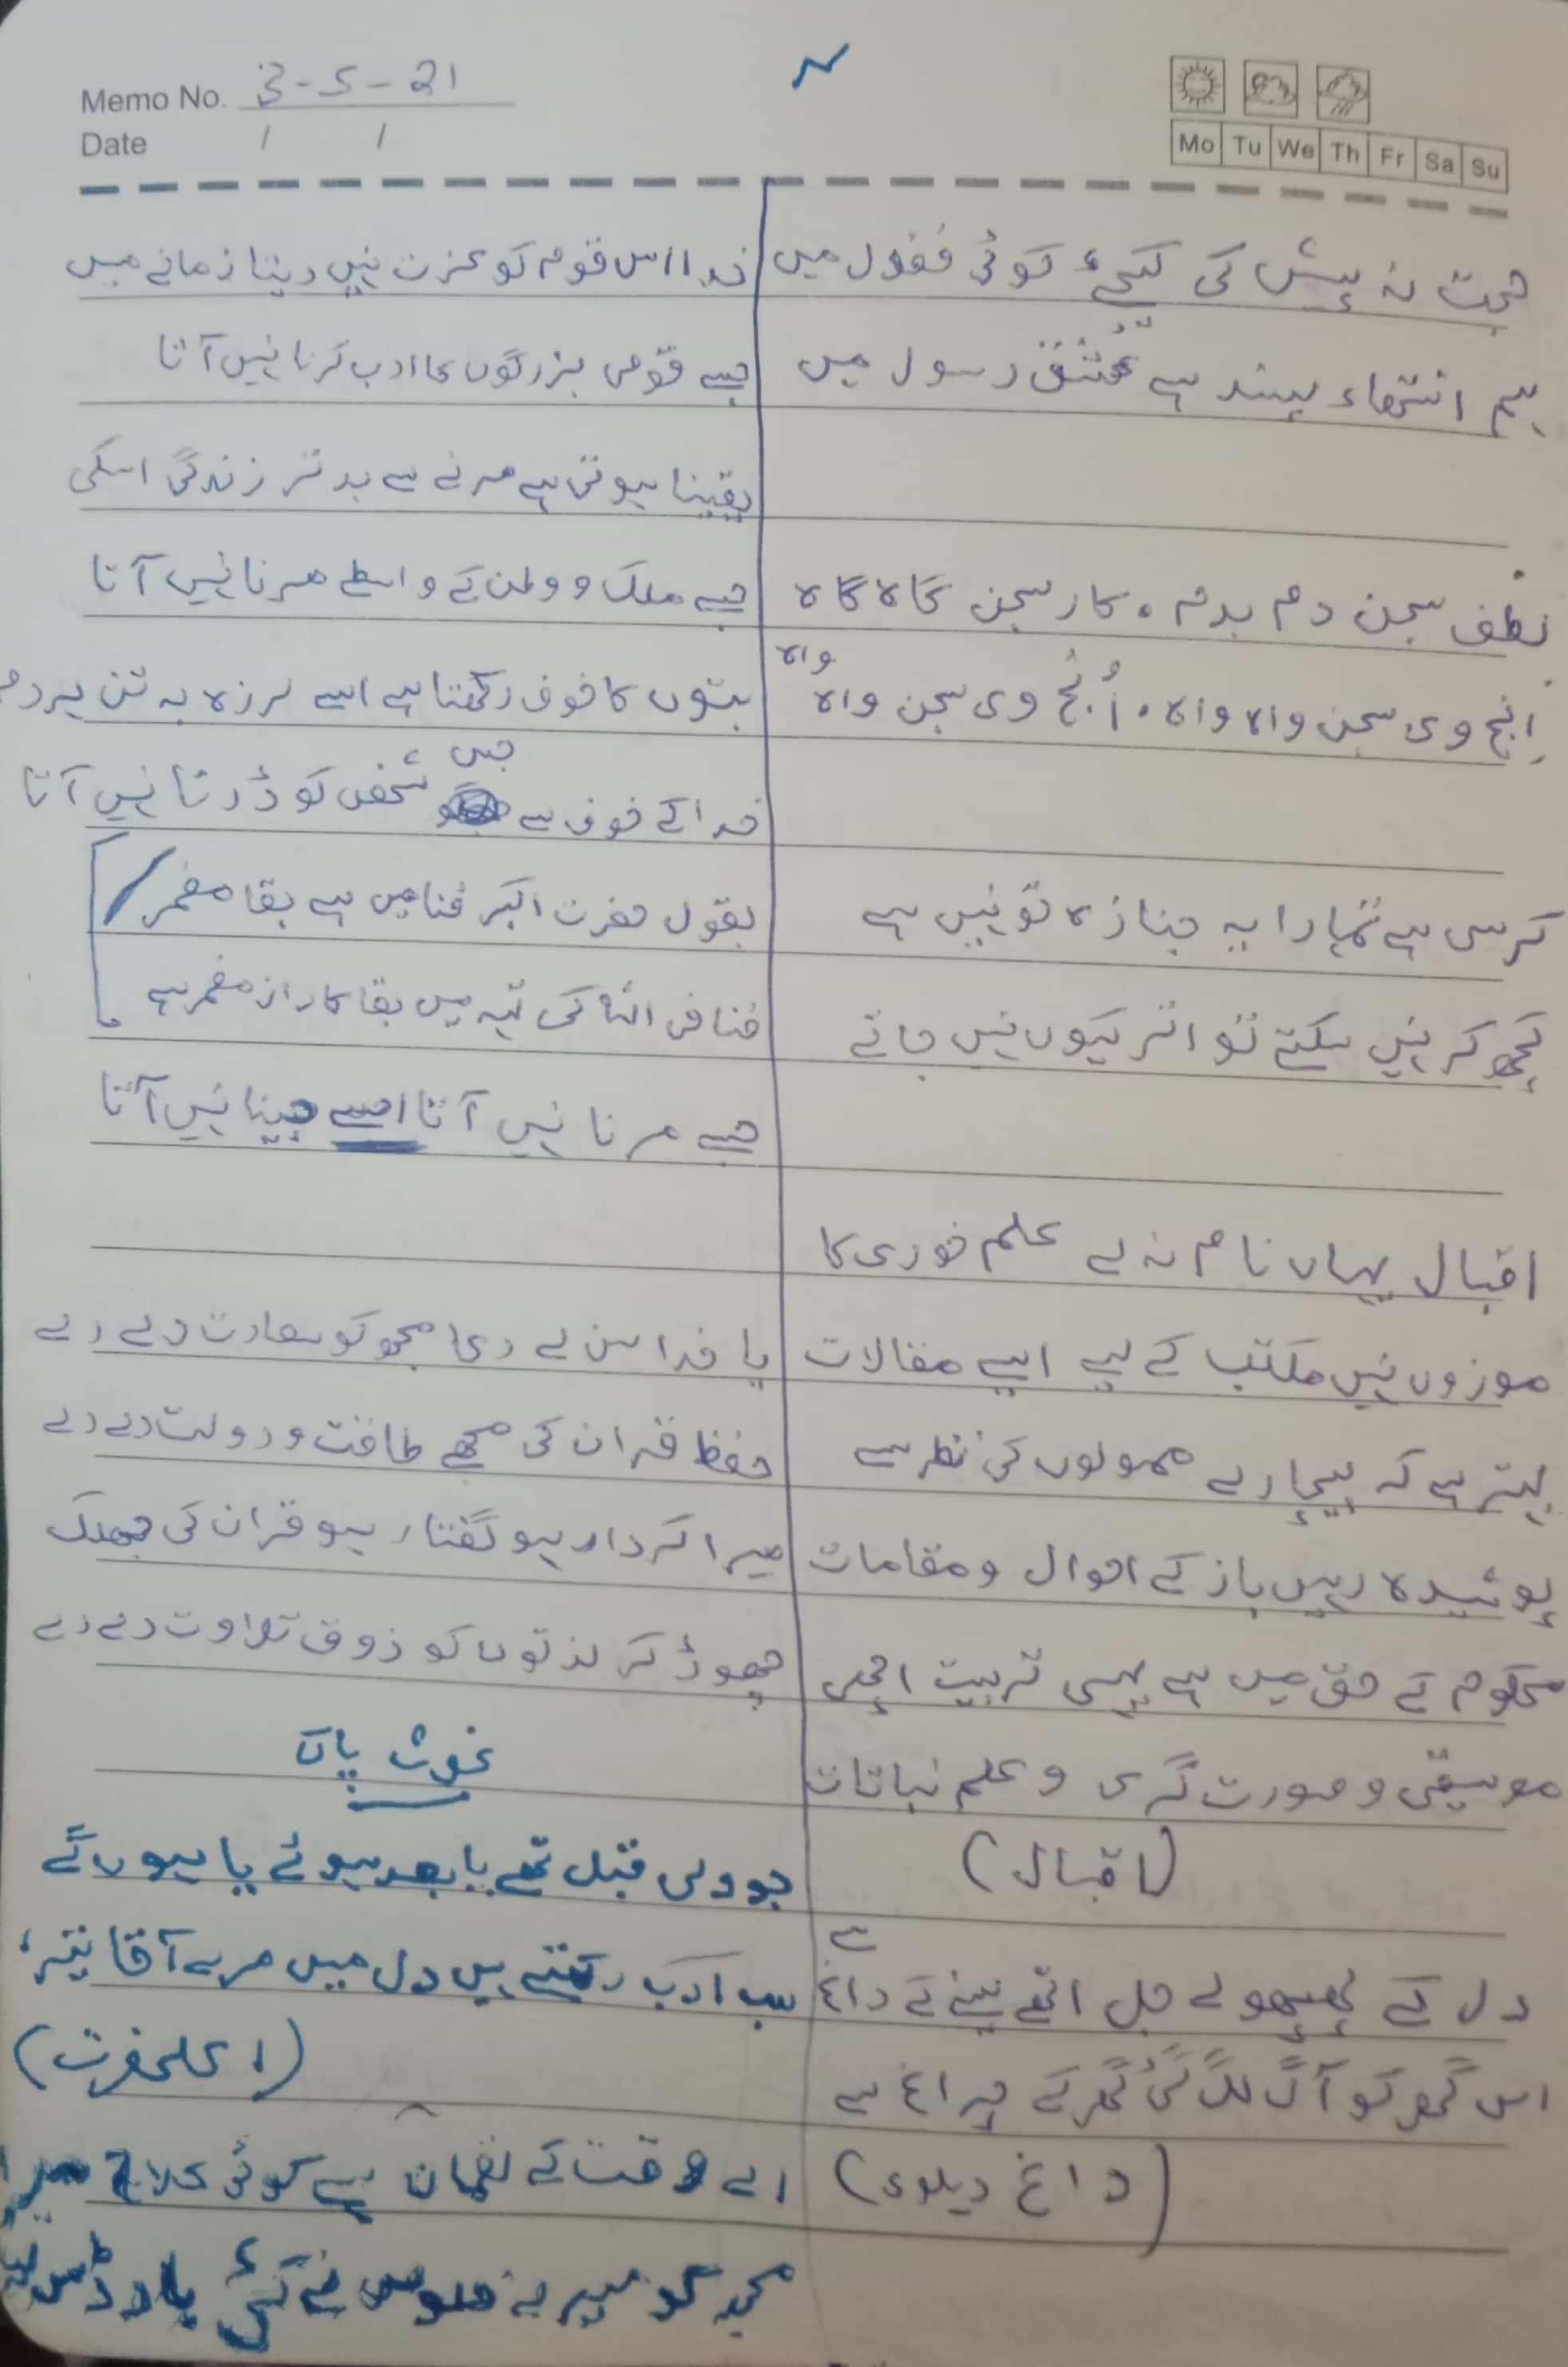 Memo No. 3-5-21
Date / /
Mo Tu We Th Fr Sa Su
حجت نہ پیش کی کیجۓ کوئی فضول میں
ہم انتھاء پسند ہے عشق رسول میں
لطف سجن دم بدم، کار سجن گاہ گاہ
اِنج وی سجن واہ واہ، اُنج وی سجن واہ واہ
کرسی ہے تمہارا یہ جنازہ تو نہیں ہے
کچھ کر نہیں سکتے تو اتر کیوں نہیں جاتے
اقبال یہاں نام نہ لے علم خودی کا
موزوں نہیں مکتب کے لیے ایسے مقالات
بہتر ہے کہ بیچارے ممولوں کی نظر سے
پوشیدہ رہیں باز کے احوال و مقامات
محکوم کے حق میں ہے یہی تربیت اچھی
موسیقی و صورت گری و علم نباتات
(اقبال)
دل کے پھپھولے جل اٹھے سینے کے داغ سے
اس گھر کو آگ لگ گئی گھر کے چراغ سے
(داغ دہلوی)
خدا اس قوم کو عزت نہیں دیتا زمانے میں
جسے قومی بزرگوں کا ادب کرنا نہیں آتا
یقینا ہوتی ہے مرنے سے بدتر زندگی اسکی
جسے ملک و وطن کے واسطے مرنا نہیں آتا
بتوں کا خوف رکھتا ہے اسے لرزہ بہ تن ہر دم
خدا کے خوف سے جس شخص کو ڈرنا نہیں آتا
بقول حضرت اکبر فنا میں ہے بقا مضمر
فنا فی اللہ کی تہہ میں بقا کا راز مضمر ہے
جسے مرنا نہیں آتا اسے جینا نہیں آتا
یا خدا سن لے دعا مجھ کو سعادت دے دے
حفظ قران کی مجھے طاقت و دولت دے دے
میرا کردار ہو گفتار ہو قران کی جھلک
چھوڑ کر لذتوں کو ذوق تلاوت دے دے
غوث پاک
جو ولی قبل تھے یا بعد ہوئے یا ہوں گے
سب ادب رکھتے ہیں دل میں مرے آقا تیرا
(اعلحضرت)
اے وقت کے لقمان ہے کوئی علاج
مجھ کو میرے خلوص نے کئی بار